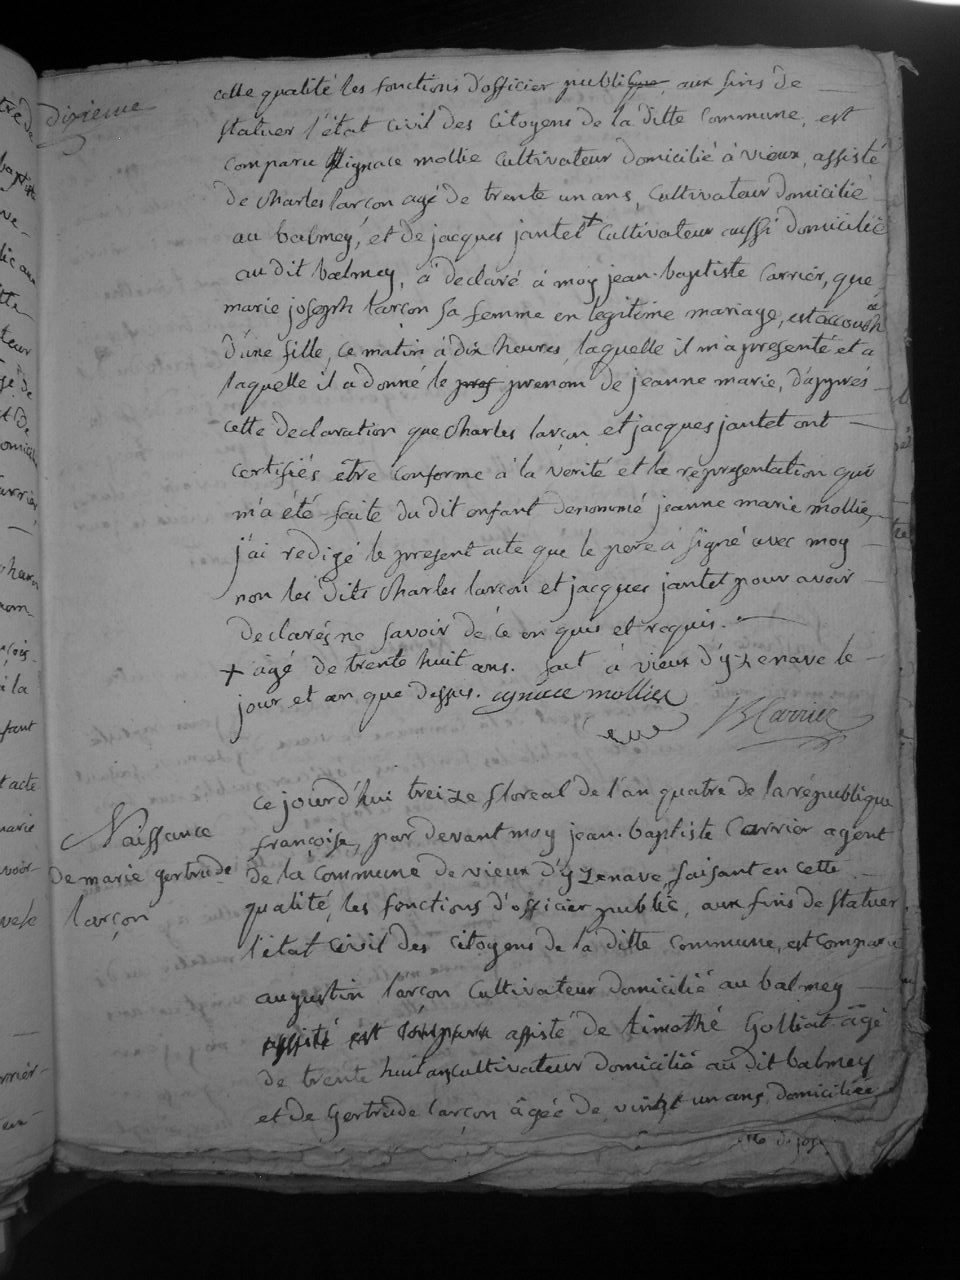 dixieme
cette qualité les fonctions d'officier publique, aux fins de
statuer l'état civil des citoyens de la ditte commune, est
comparu ignace mollie cultivateur domicilié à vieux, assisté
de charles larçon agé de trente un ans, cultivateur domicilié
au balmey, et de jacques jantet + cultivateur aussi domicilié
au dit balmey, a declaré à moy jean-baptiste carrier, que
marie joseph larçon sa femme en legitime mariage, est accouché
d'une fille, ce matin à dix heures, laquelle il m'a presenté et a
laquelle il a donné le prenom de jeanne marie, d'apprés
cette declaration que charles larçon et jacques jantet ont
certifiés etre conforme à la vérité et la representation qui
m'a été faite du dit enfant denommé jeanne marie mollie,
j'ai redigé le present acte que le pere a signé avec moy
non les dits charles larçon et jacques jantet pour avoir
declarés ne savoir de ce enquis et requis.
+ agé de trente huit ans. fait à vieux d'yzenave le
jour et an que dessus. ignace mollier
JB Carrier
Naissance
de marie gertrude
larçon
ce jourd'hui treize floreal de l'an quatre de la république
françoise, par devant moy jean-baptiste carrier agent
de la commune de vieux d'yzenave, faisant en cette
qualité, les fonctions d'officier public, aux fins de statuer
l'état civil des citoyens de la ditte commune, est comparu
augustin larçon cultivateur domicilié au balmey
assisté est comparu assisté de timothé Golliat agé
de trente huit ans cultivateur domicilié au dit balmey
et de Gertrude larçon âgée de vingt un ans, domiciliée